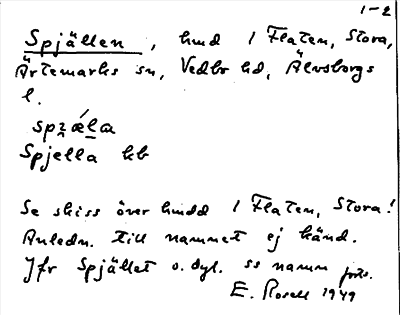 1-2
Spjällen, hmd 1 Flaten, Stora,
Ärtemarks sn, Vedbo hd, Älvsborgs
l.
Spjella kb
Se skiss över hmdd 1 Flaten, Stora!
Anledn. till namnet ej känd.
Jfr Spjället o. dyl. ss namn forts.
E. Rosell 1949